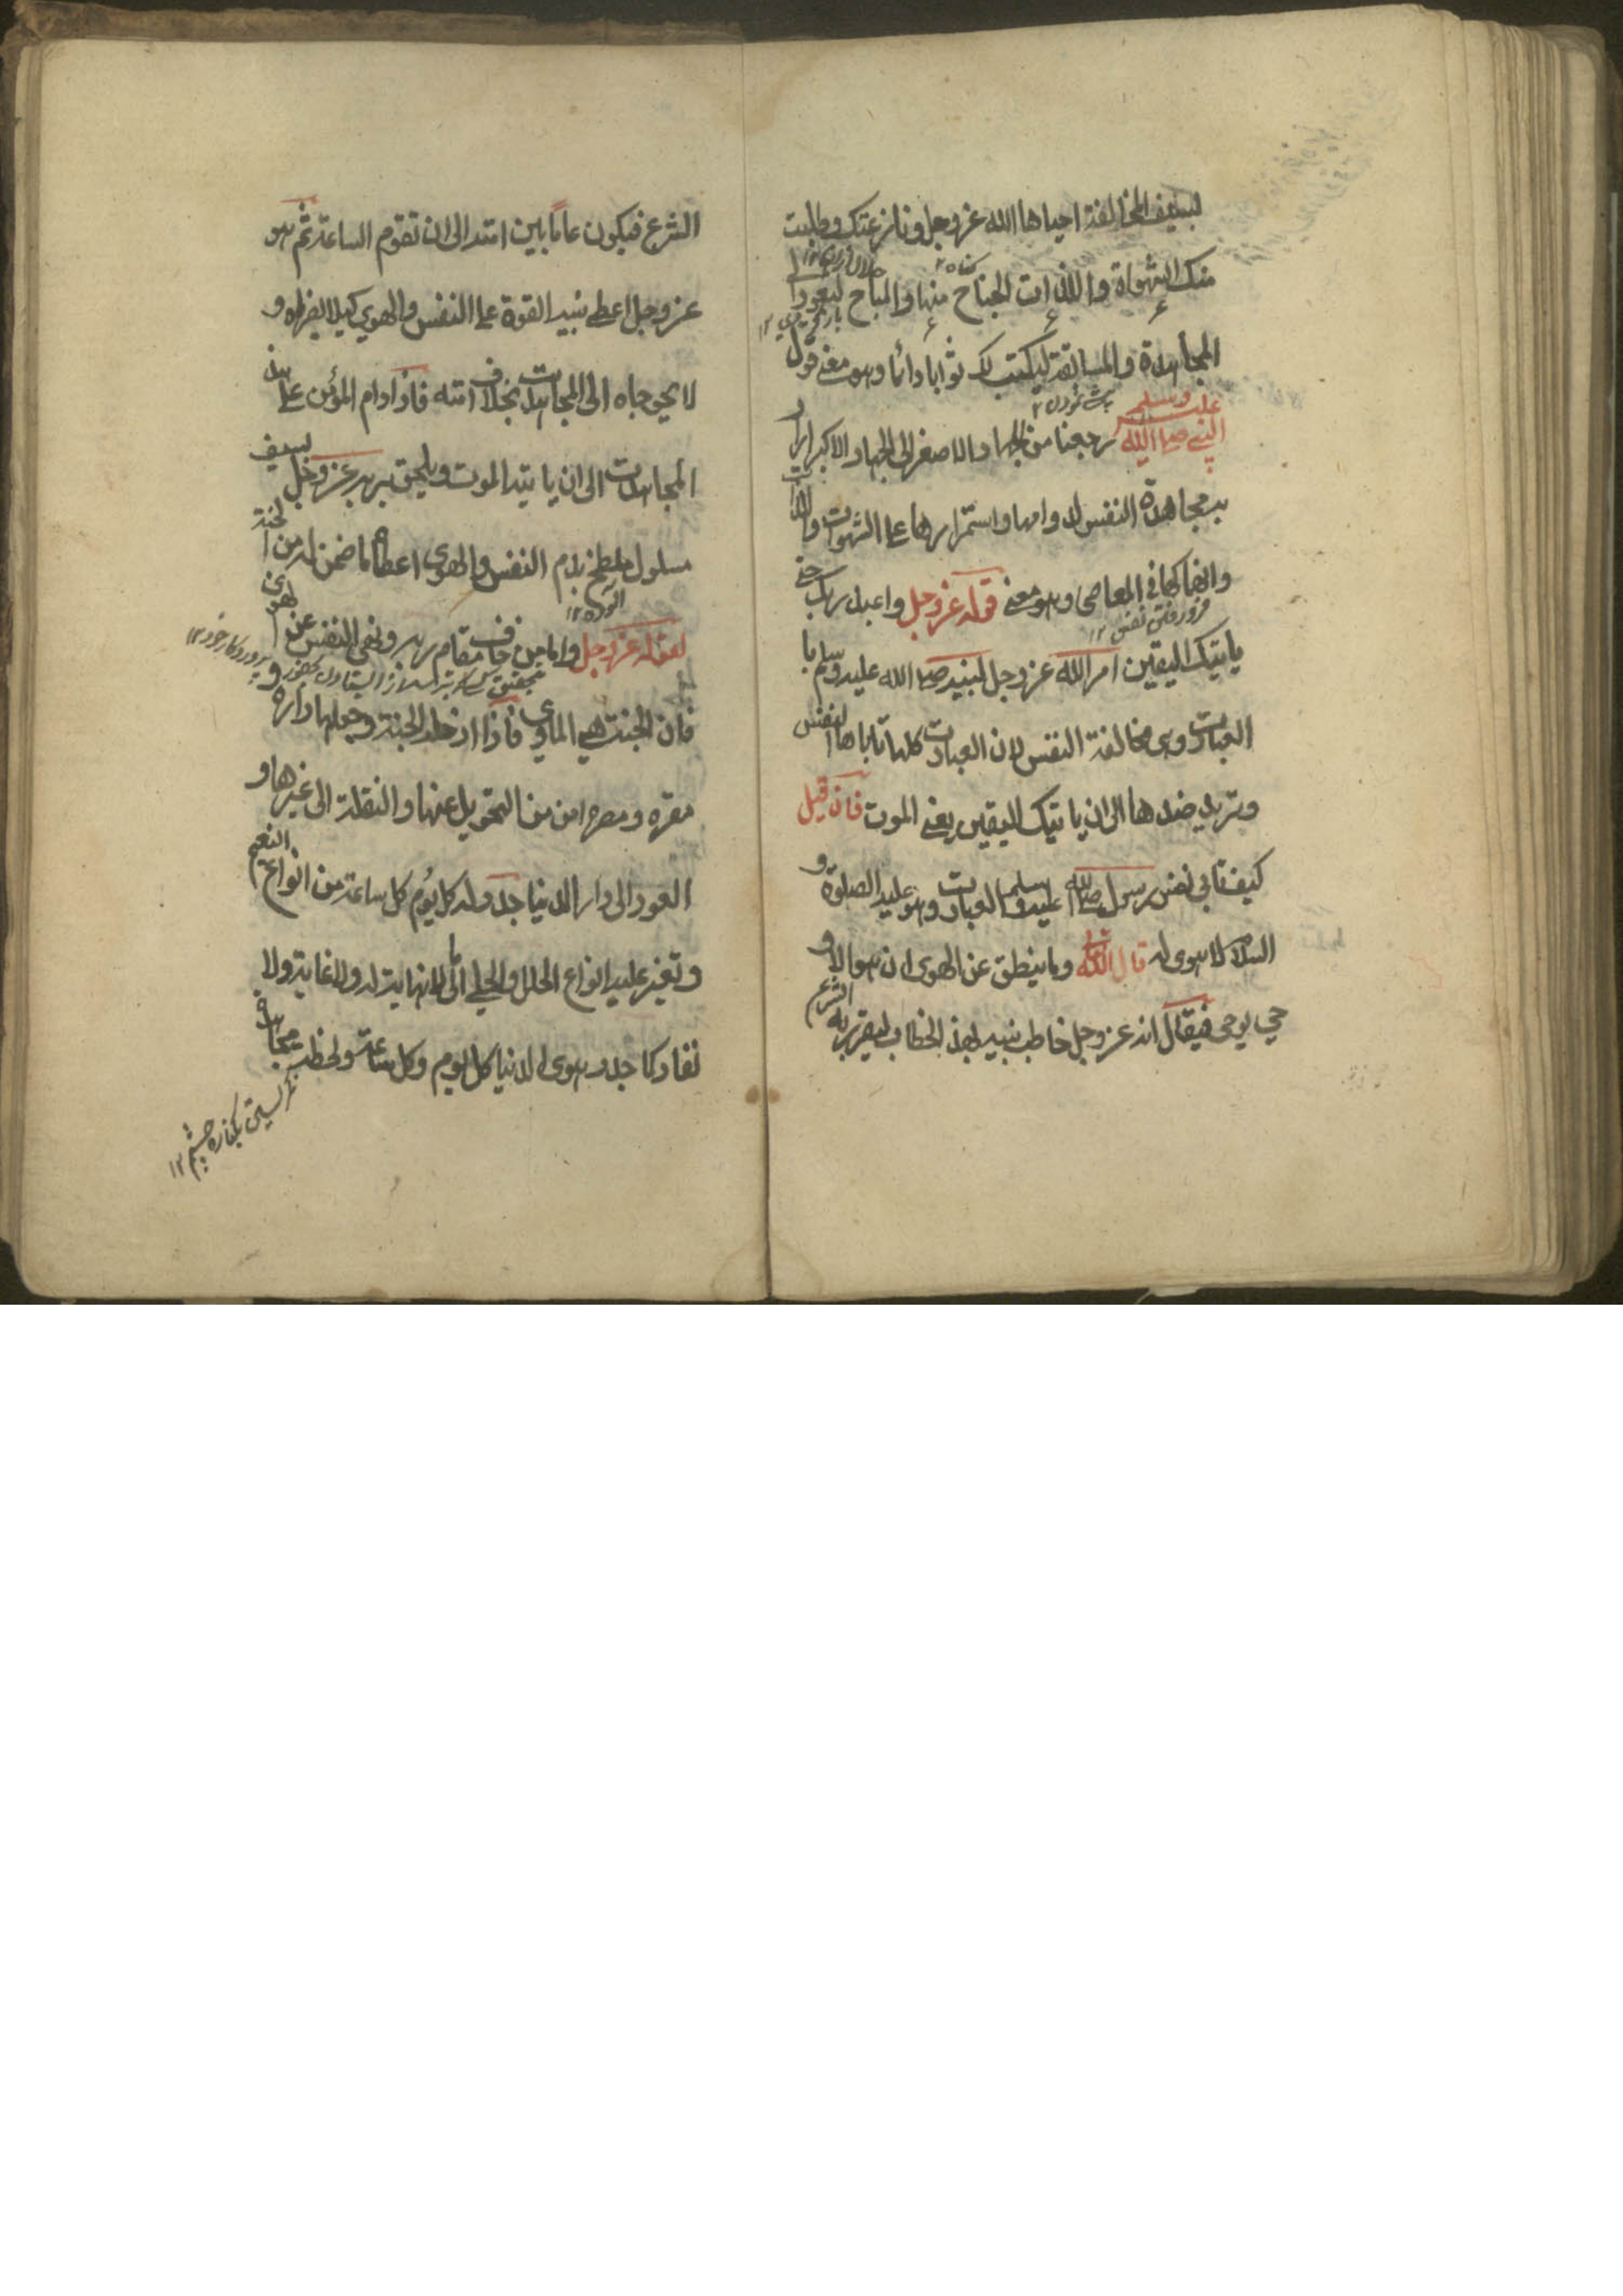 بسيف المخالفة احياها الله عز وجل ونازعتك وطلبت
منك الشهواة واللذات الجناح منها والمباح لتعود الى
المجاهدة والمسابقة ليكتب لك ثوابا دائما وهو معنے قول
النبے صلے الله عليه وسلم رجعنا من الجهاد الاصغر الى الجهاد الاكبر اراد
به مجاهدة النفس لدوامها واستمرارها علے الشهوات واللذات
وانهماكها فى المعاصى وهو معنے قوله عز وجل واعبد ربك حتے
ياتيك اليقين امر الله عز وجل لنبيه صلے الله عليه وسلم با
لعبادت وهى مخالفة النفس لان العبادت كلها تاباها النفس
وتريد ضدها الى ان ياتيك اليقين يعنے الموت فان قيل
كيف تابى نفس رسول الله صلے الله عليه وسلم العبادت وهو عليه الصلوة و
السلام لا هوى له قال الله تعالے وما ينطق عن الهوى ان هو الا و
حى يوحى فيقال انه عز وجل خاطب نبيه بهذ الخطاب ليقرر به الشرع
الشرع فيكون عاما بين امته الى ان تقوم الساعة ثم هو
عز وجل اعطے نبيه القوة علے النفس والهوي كيلا يضراه و
لا يحوجاه الى المجاهدت بخلاف امته فاذا دام المؤمن علے هذ
المجاهدت الى ان ياتيه الموت ويلحق بربه عز وجل بسيف
مسلول ملطخ بدم النفس والهوى اعطاه ما ضمن له من الجنة
لقوله عز وجل واما من خاف مقام ربه ونهى النفس عن الهوى
فان الجنة هي الماوي فاذا ادخله الجنة وجعلها داره و
مقره ومصيره امن من التحويل عنها والنقلة الى غيرها و
العود الى دار الدنيا جدد له كل يوم كل ساعة من انواع النعيم
وتغير عليه انواع الحلل والحلے الى ما لا نهاية له ولا غاية ولا
نفاد كما جدد هوى الدنيا كل يوم وكل ساعة ولحظة مجاهدة
نگريستن بكناره چشم ١٢